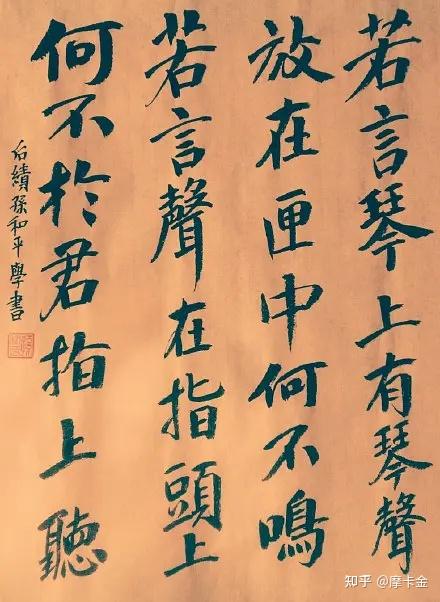 若言琴上有琴聲
放在匣中何不鳴
若言聲在指頭上
何不於君指上聽
績孫和平學書
知乎 @摩卡金